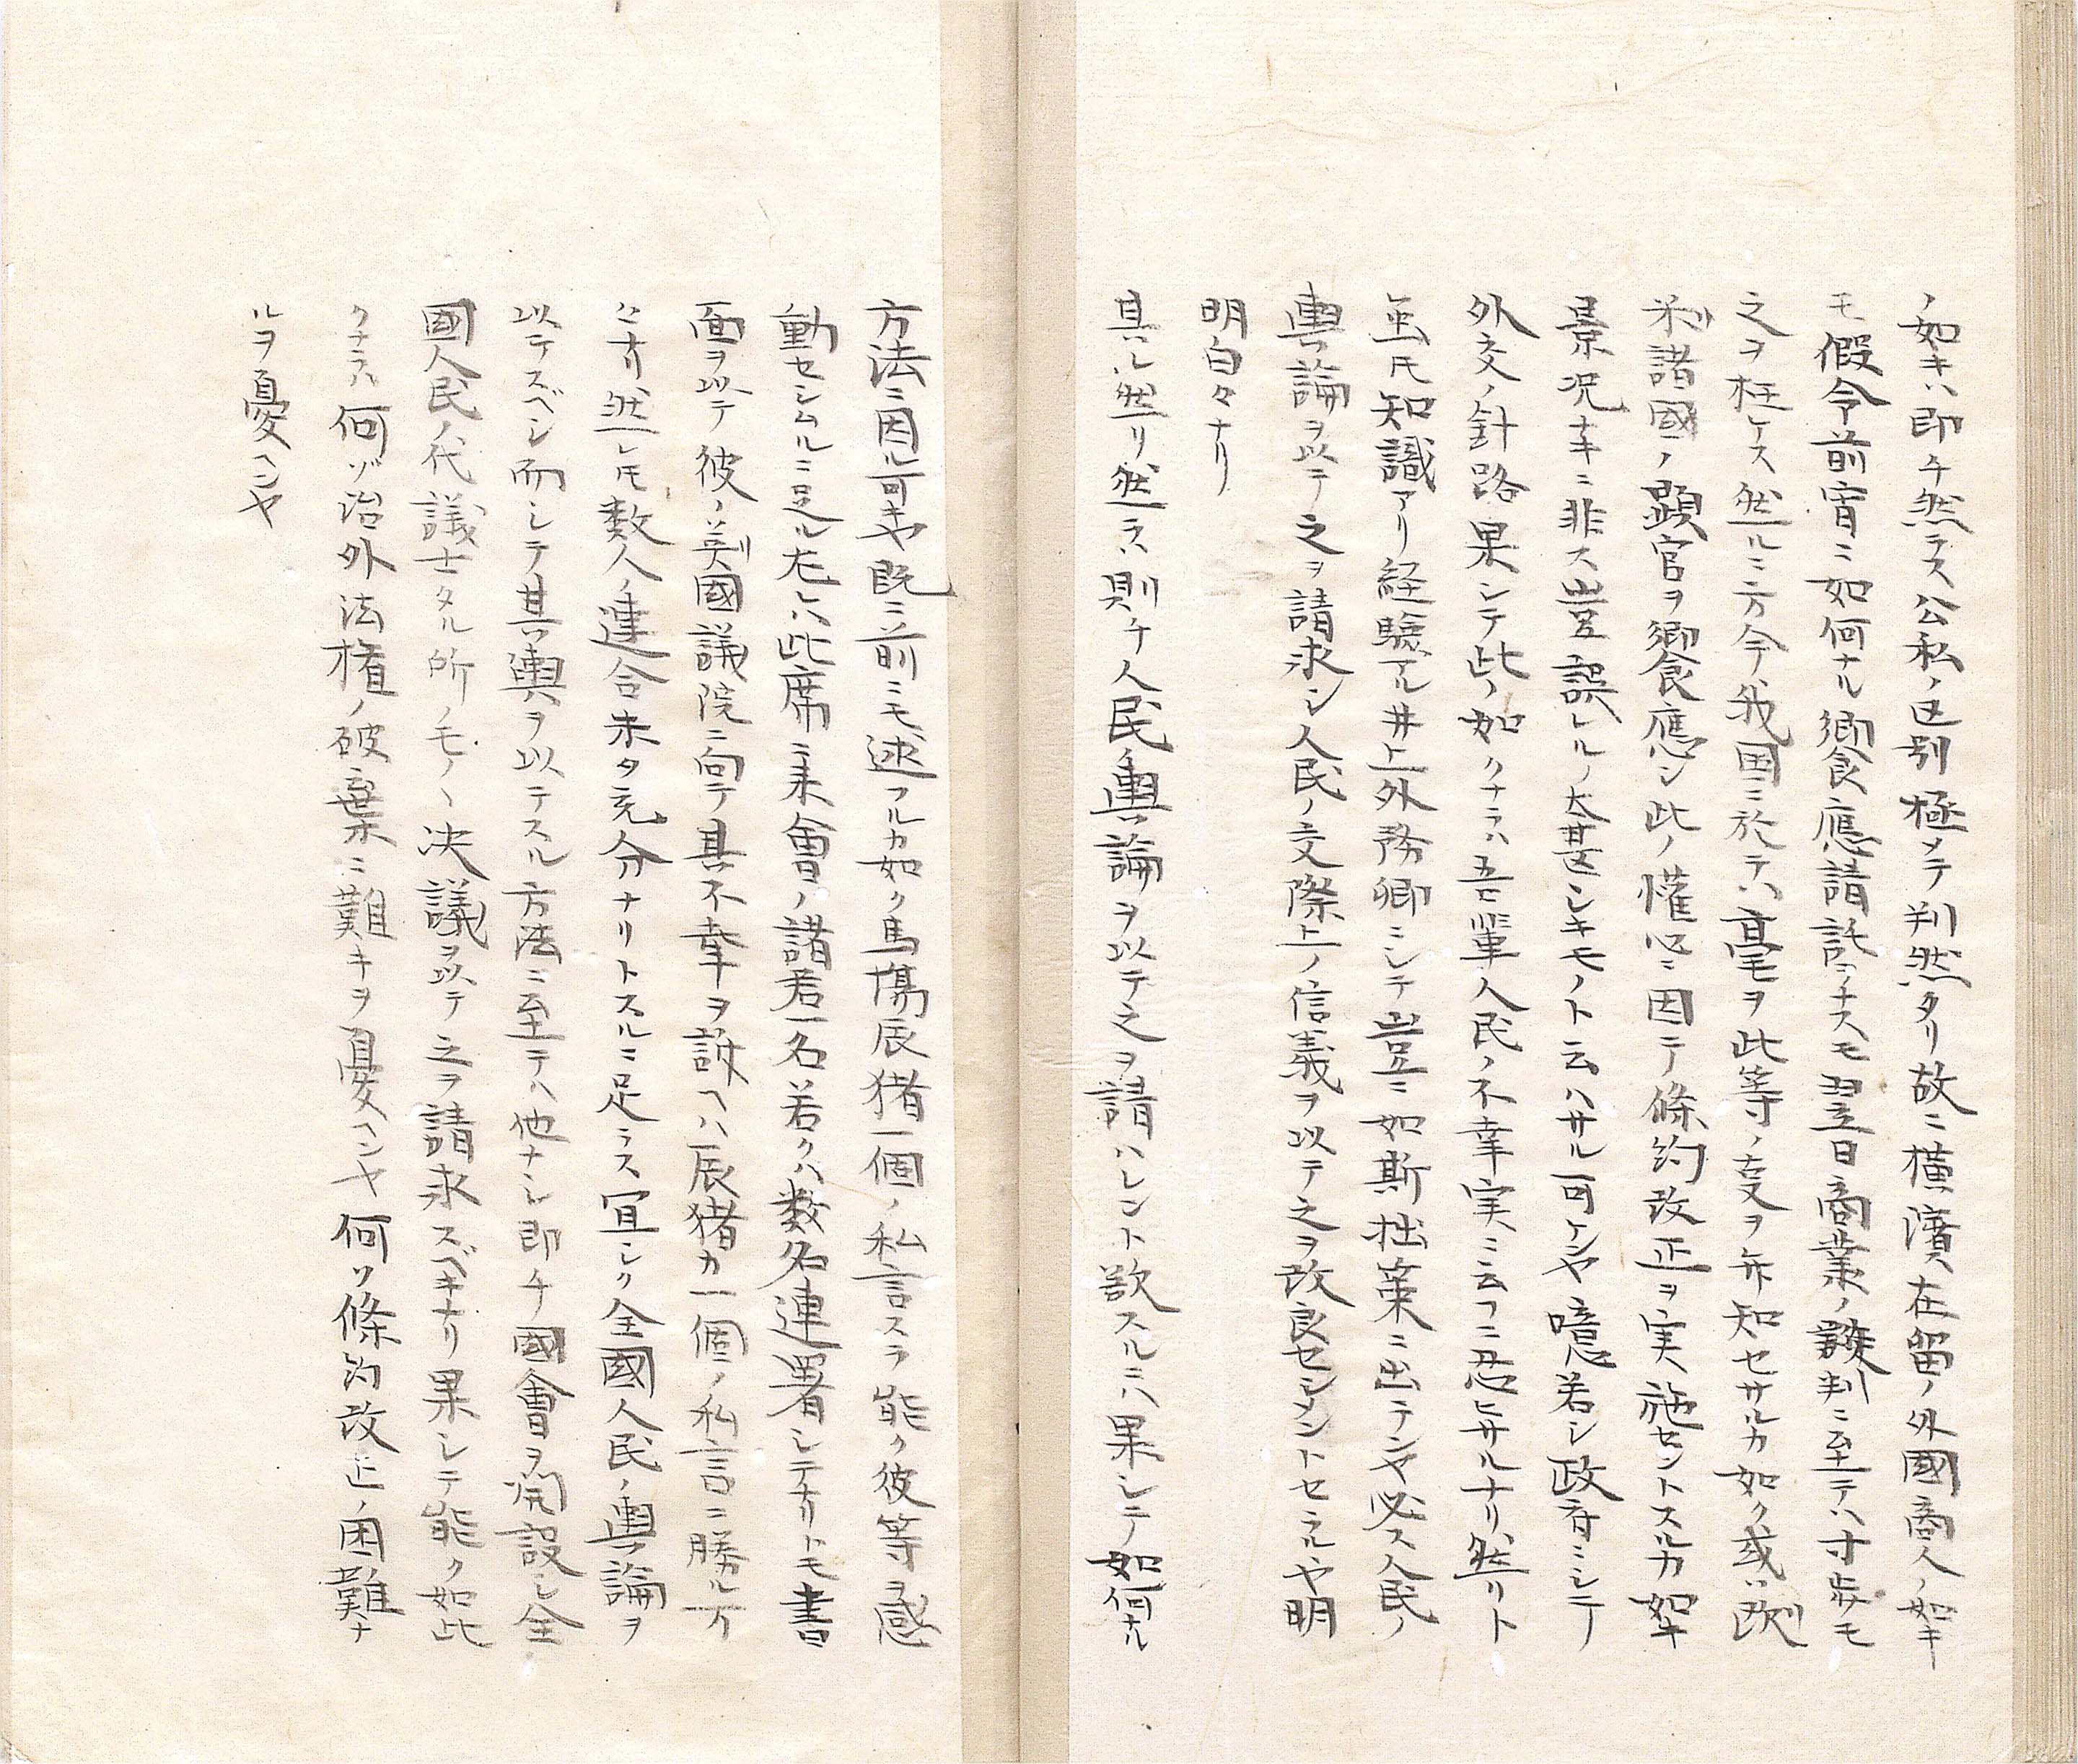 ノ如キハ即チ然ラス公私ノ区別極メテ判然タリ故ニ横濱在留ノ外國商人ノ如キ
モ假令前宵ニ如何ナル饗應請託ヲナスモ翌日商業ノ談判ニ至テハ寸歩モ
之ヲ枉ケス然ルニ方今我国ニ於テハ毫モ此等ノ支ヲ弁知セサルカ如ク或ハ欧
米諸國ノ顕官ヲ饗應シ此ノ懽心ニ因テ條約改正ヲ実施セントスルカ如キ
景况ナキニ非ス豈誤レルノ太甚シキモノト云ハサル可ケンヤ噫若シ政府ニシテ
外交ノ針路果シテ此ノ如クナラハ吾輩人民ノ不幸実ニ云フニ忍ヒサルナリ然リト
虽𪜈知識アリ経驗アル井上外務卿ニシテ豈ニ如斯拙策ニ出テンヤ必ス人民ノ
輿論ヲ以テ之ヲ請求シ人民ノ交際上ノ信義ヲ以テ之ヲ改良セシメントセラルヤ明
明白々ナリ
其レ然リ然ラハ則チ人民ノ輿論ヲ以テ之ヲ請ハレント欲スルニハ果シテ如何ナル
方法ニ因ル可キヤ既ニ前ニモ述フルカ如ク馬塲辰猪一個ノ私言スラ能ク彼等ヲ感
動セシムルニ足ル左レハ此席ニ来會ノ諸君一名若クハ数名連署シテナリトモ書
面ヲ以テ彼ノ英國議院ニ向テ其不幸ヲ訴ヘハ辰猪カ一個ノ私言ニ勝ル万
々ナリ然レ𪜈数人ノ連合未タ充分ナリトスルニ足ラス宜シク全國人民ノ輿論ヲ
以テスベシ而シテ其輿ヲ以テスル方法ニ至テハ他ナシ即チ國會ヲ開設シ全
國人民ノ代議士タル所ノモノヽ决議ヲ以テ之ヲ請求スベキナリ果シテ能ク如此
クナラハ何ゾ治外法権ノ破棄ニ難キヲ憂ヘンヤ何ソ條約改正ノ困難ナ
ルヲ憂ヘンヤ